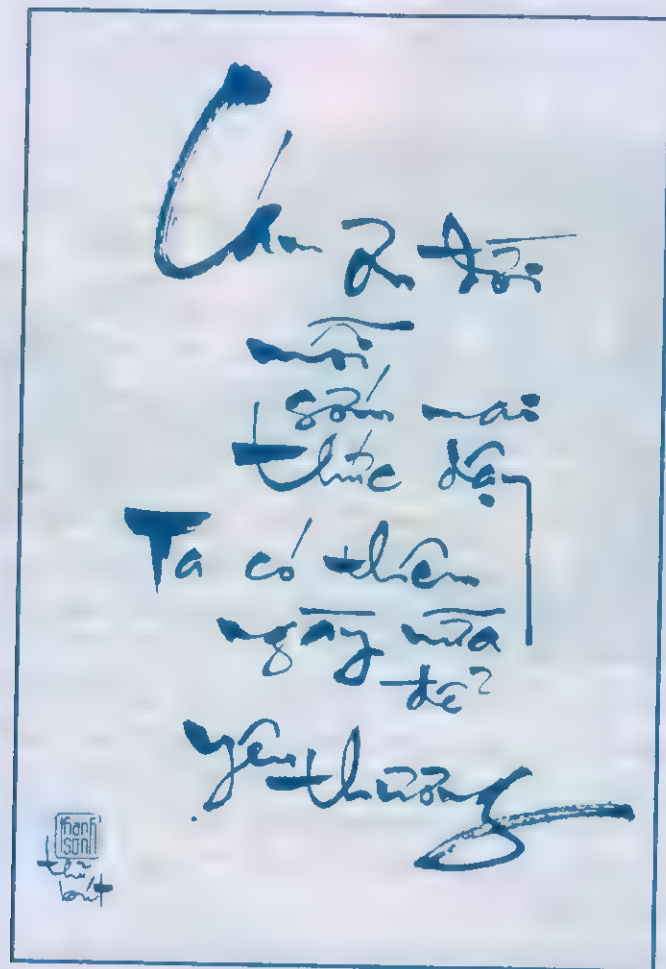 Cám ơn đời
mỗi
sớm mai
thức dậy
Ta có thêm
ngày nữa
để
yêu thương
thanh
sơn
thủ
bút